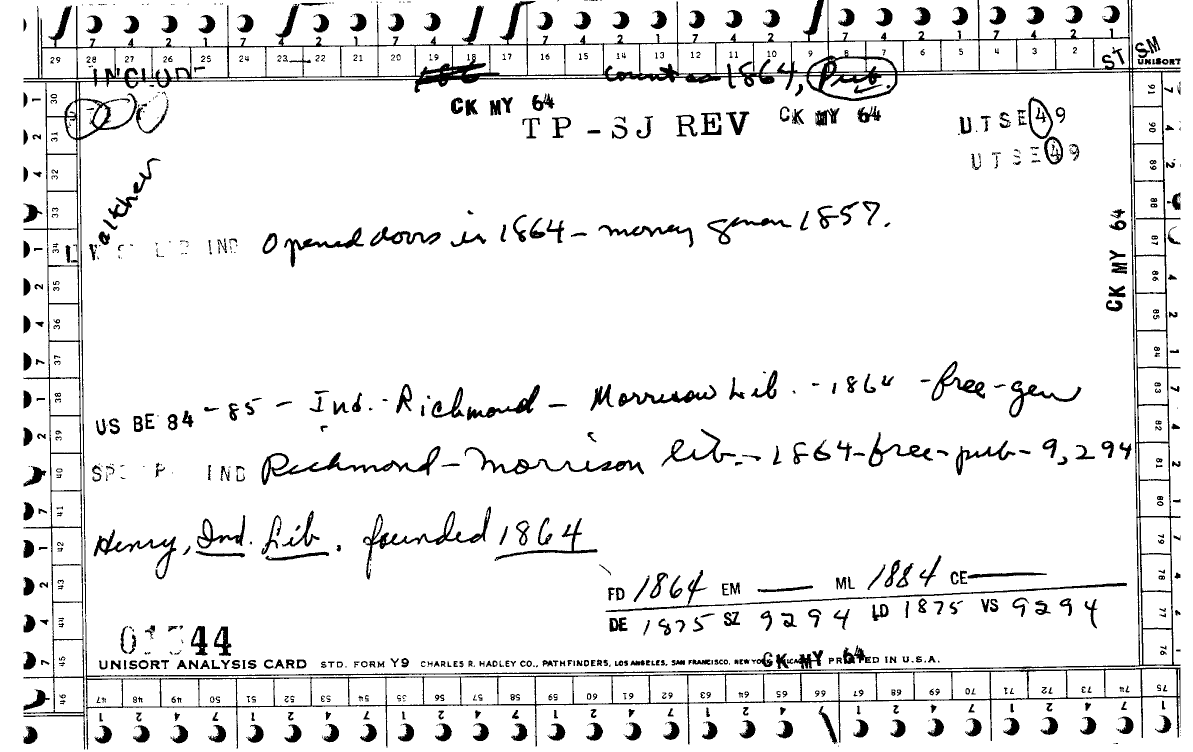 7 4 2 1 7 4 2 1 7 4 2 1 7 4 2 1 7 4 2 1 7 4 2 1 7 4 2 1
29 28 27 26 25 24 23 22 21 20 19 18 17 16 15 14 13 12 11 10 9 8 7 6 5 4 3 2 1 ST SM
UNISORT
INCLUD count as 1864, Pub.
CK MY 64 CK MY 64
TP-SJ REV UTSE 49
UTSE 49
Walther
LIB IND Opened doors in 1864 - money given 1857.
CK MY 64
US BE 84-85 - Ind. - Richmond - Morrison Lib. - 1864 - free - gen
IND Richmond - Morrison lib. - 1864 - free - pub - 9,294
Henry, Ind. Lib. founded 1864
FD 1864 EM — ML 1884 CE —
DE 1875 SZ 9294 LD 1875 VS 9294
01344
UNISORT ANALYSIS CARD STD. FORM Y9 CHARLES R. HADLEY CO., PATHFINDERS, LOS ANGELES, SAN FRANCISCO, NEW YORK, CHICAGO PRINTED IN U.S.A.
CK MY 64
30 31 32 33 34 35 36 37 38 39 40 41 42 43 44 45 46
91 90 89 88 87 86 85 84 83 82 81 80 79 78 77 76 75
47 48 49 50 51 52 53 54 55 56 57 58 59 60 61 62 63 64 65 66 67 68 69 70 71 72 73 74
1 2 4 7 1 2 4 7 1 2 4 7 1 2 4 7 1 2 4 7 1 2 4 7 1 2 4 7